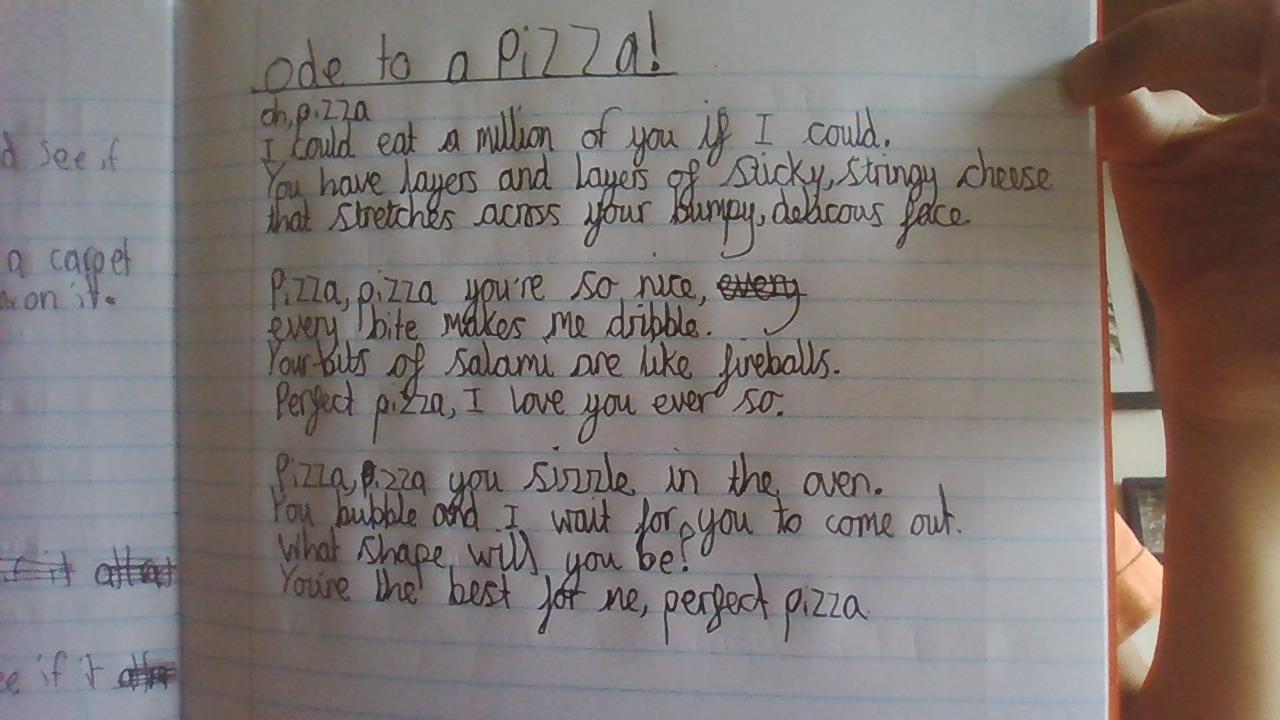 d see if
a carpet
on it.
f it
e if it
Ode to a Pizza!
oh, pizza
I could eat a million of you if I could.
You have layers and layers of sticky, stringy cheese
that stretches across your bumpy, delicous face
Pizza, pizza you're so nice, every
every bite makes me dribble.
Your bits of salami are like fireballs.
Perfect pizza, I love you ever so.
Pizza, pizza you sizzle in the oven.
You bubble and I wait for you to come out.
What shape will you be?
You're the best for me, perfect pizza.